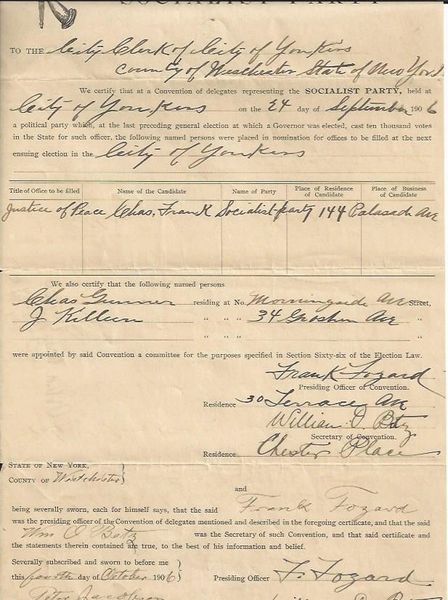 SOCIALIST PARTY
TO THE City Clerk of City of Yonkers
County of Westchester State of New York
We certify that at a Convention of delegates representing the SOCIALIST PARTY, held at
City of Yonkers on the 24 day of September 1906
a political party which, at the last preceding general election at which a Governor was elected, cast ten thousand votes
in the State for such officer, the following named persons were placed in nomination for offices to be filled at the next
ensuing election in the City of Yonkers
Title of Office to be filled Name of the Candidate Name of Party Place of Residence of Candidate Place of Business of Candidate
Justice of Peace Chas. Frank Socialist party 144 Palasade Ave
We also certify that the following named persons
Chas residing at No. Morningside Ave Street,
J Killeen " " " 34 Ave " "
were appointed by said Convention a committee for the purposes specified in Section Sixty-six of the Election Law.
Frank Fozard
Presiding Officer of Convention.
Residence 30 Terrace Ave
William O. Betz
Secretary of Convention.
Residence: Chester Place
STATE OF NEW YORK,
COUNTY OF Westchester
and Frank Fozard
being severally sworn, each for himself says, that the said
was the presiding officer of the Convention of delegates mentioned and described in the foregoing certificate, and that the said
Wm O Betz was the Secretary of such Convention, and that said certificate and
the statements therein contained are true, to the best of his information and belief.
Severally subscribed and sworn to before me
this fourth day of October 1906 Presiding Officer F. Fozard